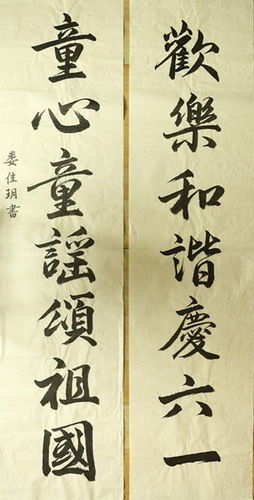 歡樂和諧慶六一
童心童謠頌祖國
娄佳玥書